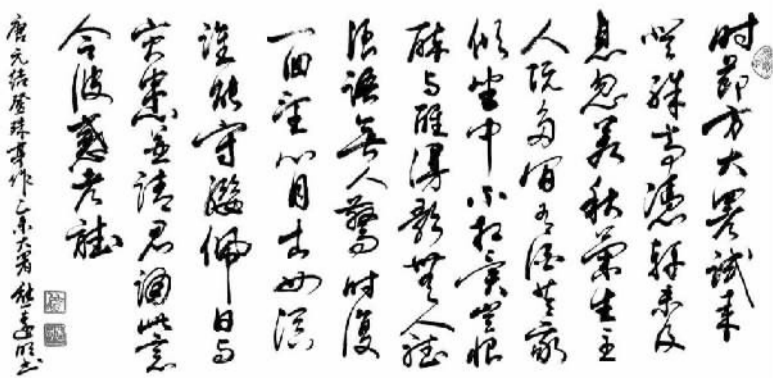 时节方大暑试来
登殊亭凭轩未及
息忽若秋气生主
人既多闲有酒共我
倾坐中不相异岂恨
醉与醒漫歌无人听
浪语无人惊时复
一回望心目出四溟
谁能守缨佩日与
灾患并请君诵此意
令彼惑者听
唐元结登殊亭作乙未大暑